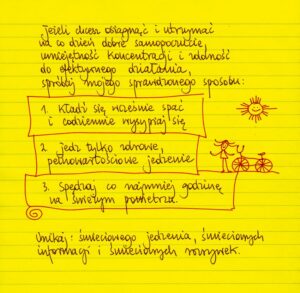 Jeśli chcesz osiągnąć i utrzymać
na co dzień dobre samopoczucie,
umiejętność koncentracji i zdolność
do efektywnego działania,
spróbuj mojego sprawdzonego sposobu:
1. Kładź się wcześnie spać
i codziennie wysypiaj się
2. jedz tylko zdrowe,
pełnowartościowe jedzenie
3. Spędzaj co najmniej godzinę
na świeżym powietrzu.
Unikaj: śmieciowego jedzenia, śmieciowych
informacji i śmieciowych rozrywek.